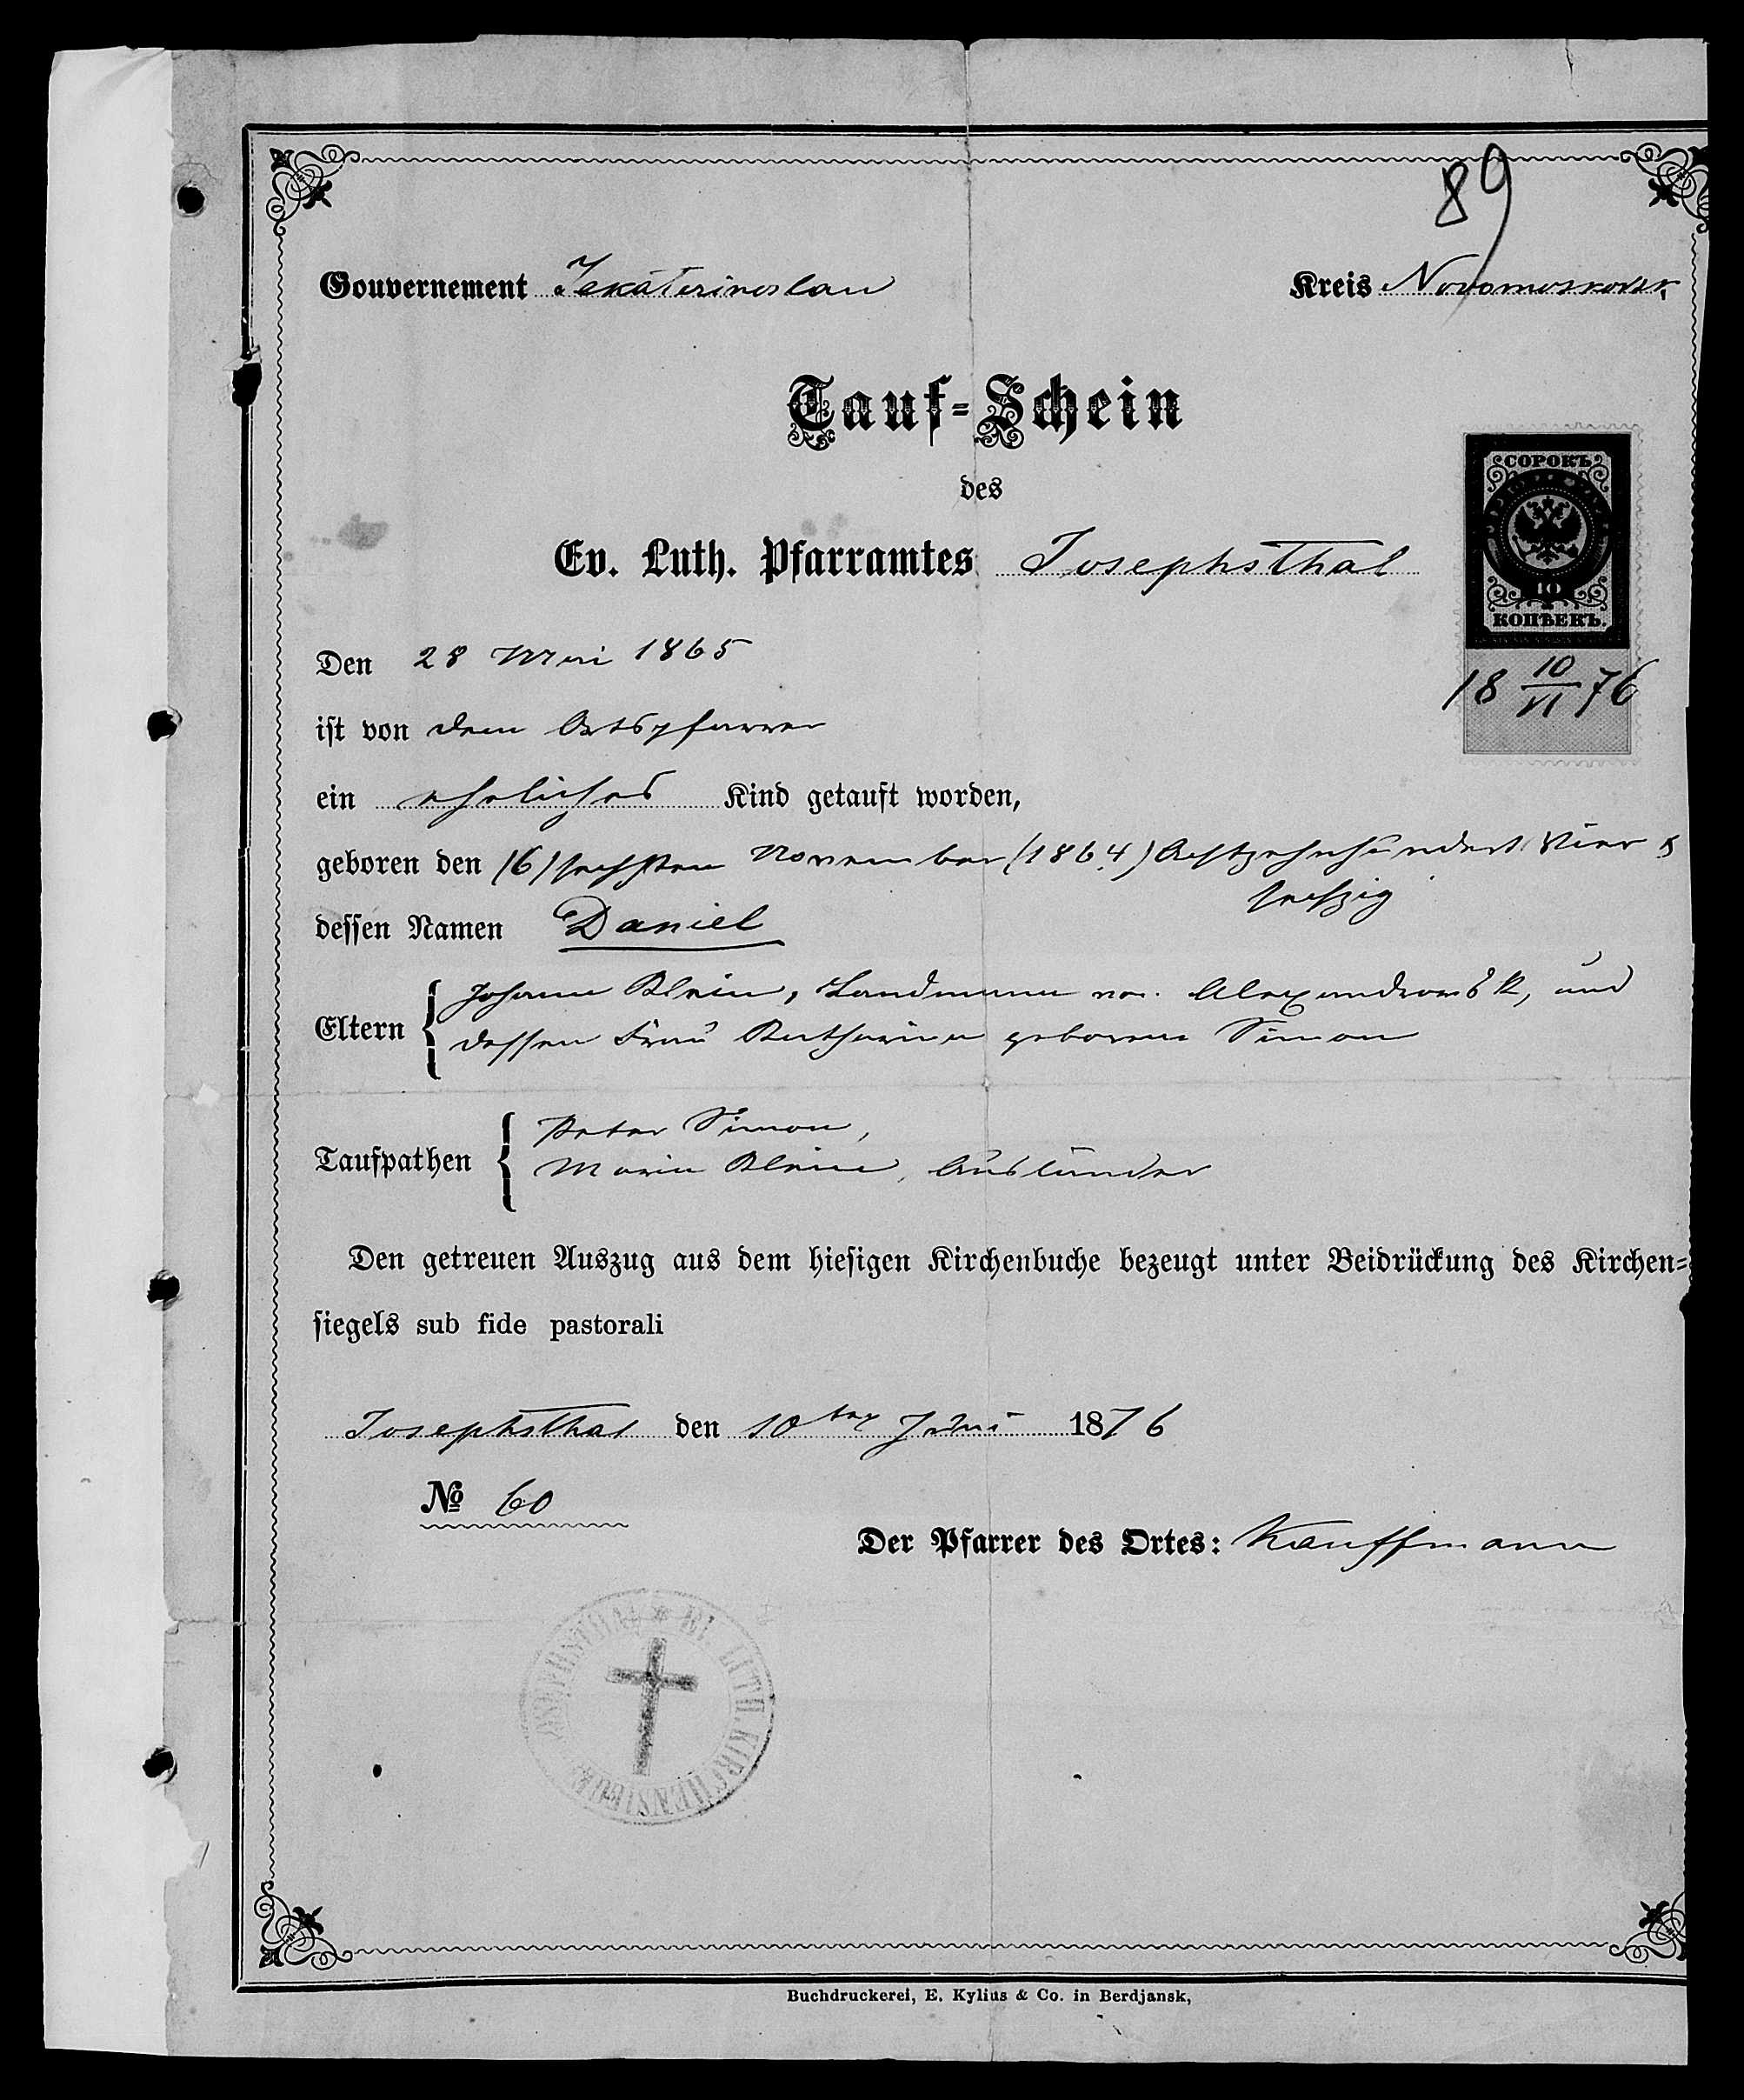 89
Gouvernement Jekaterinoslau Kreis Novomoskovsk
Tauf=Schein
des
Ev. Luth. Pfarramtes Josephsthal
СОРОКЪ
40
КОПѢЕКЪ.
18 10/VI 76
Den 28 Mai 1865
ist von dem Ortspfarrer
ein eheliches Kind getauft worden,
geboren den (6) sechsten November (1864) Achtzehnhundert Vier &
sechzig
dessen Namen Daniel
Eltern { Johann Klein, Landmann von Alexandrowsk, und
dessen Frau Katharina geborene Simon
Taufpathen { Peter Simon,
Maria Klein, Ausländer
Den getreuen Auszug aus dem hiesigen Kirchenbuche bezeugt unter Beidrückung des Kirchen=
siegels sub fide pastorali
Josephsthal den 10ten Juni 1876
№ 60
Der Pfarrer des Ortes: Kauffmann
EV. LUTH. KIRCHENSIEGEL JOSEPHSTHAL
Buchdruckerei, E. Kylius & Co. in Berdjansk,